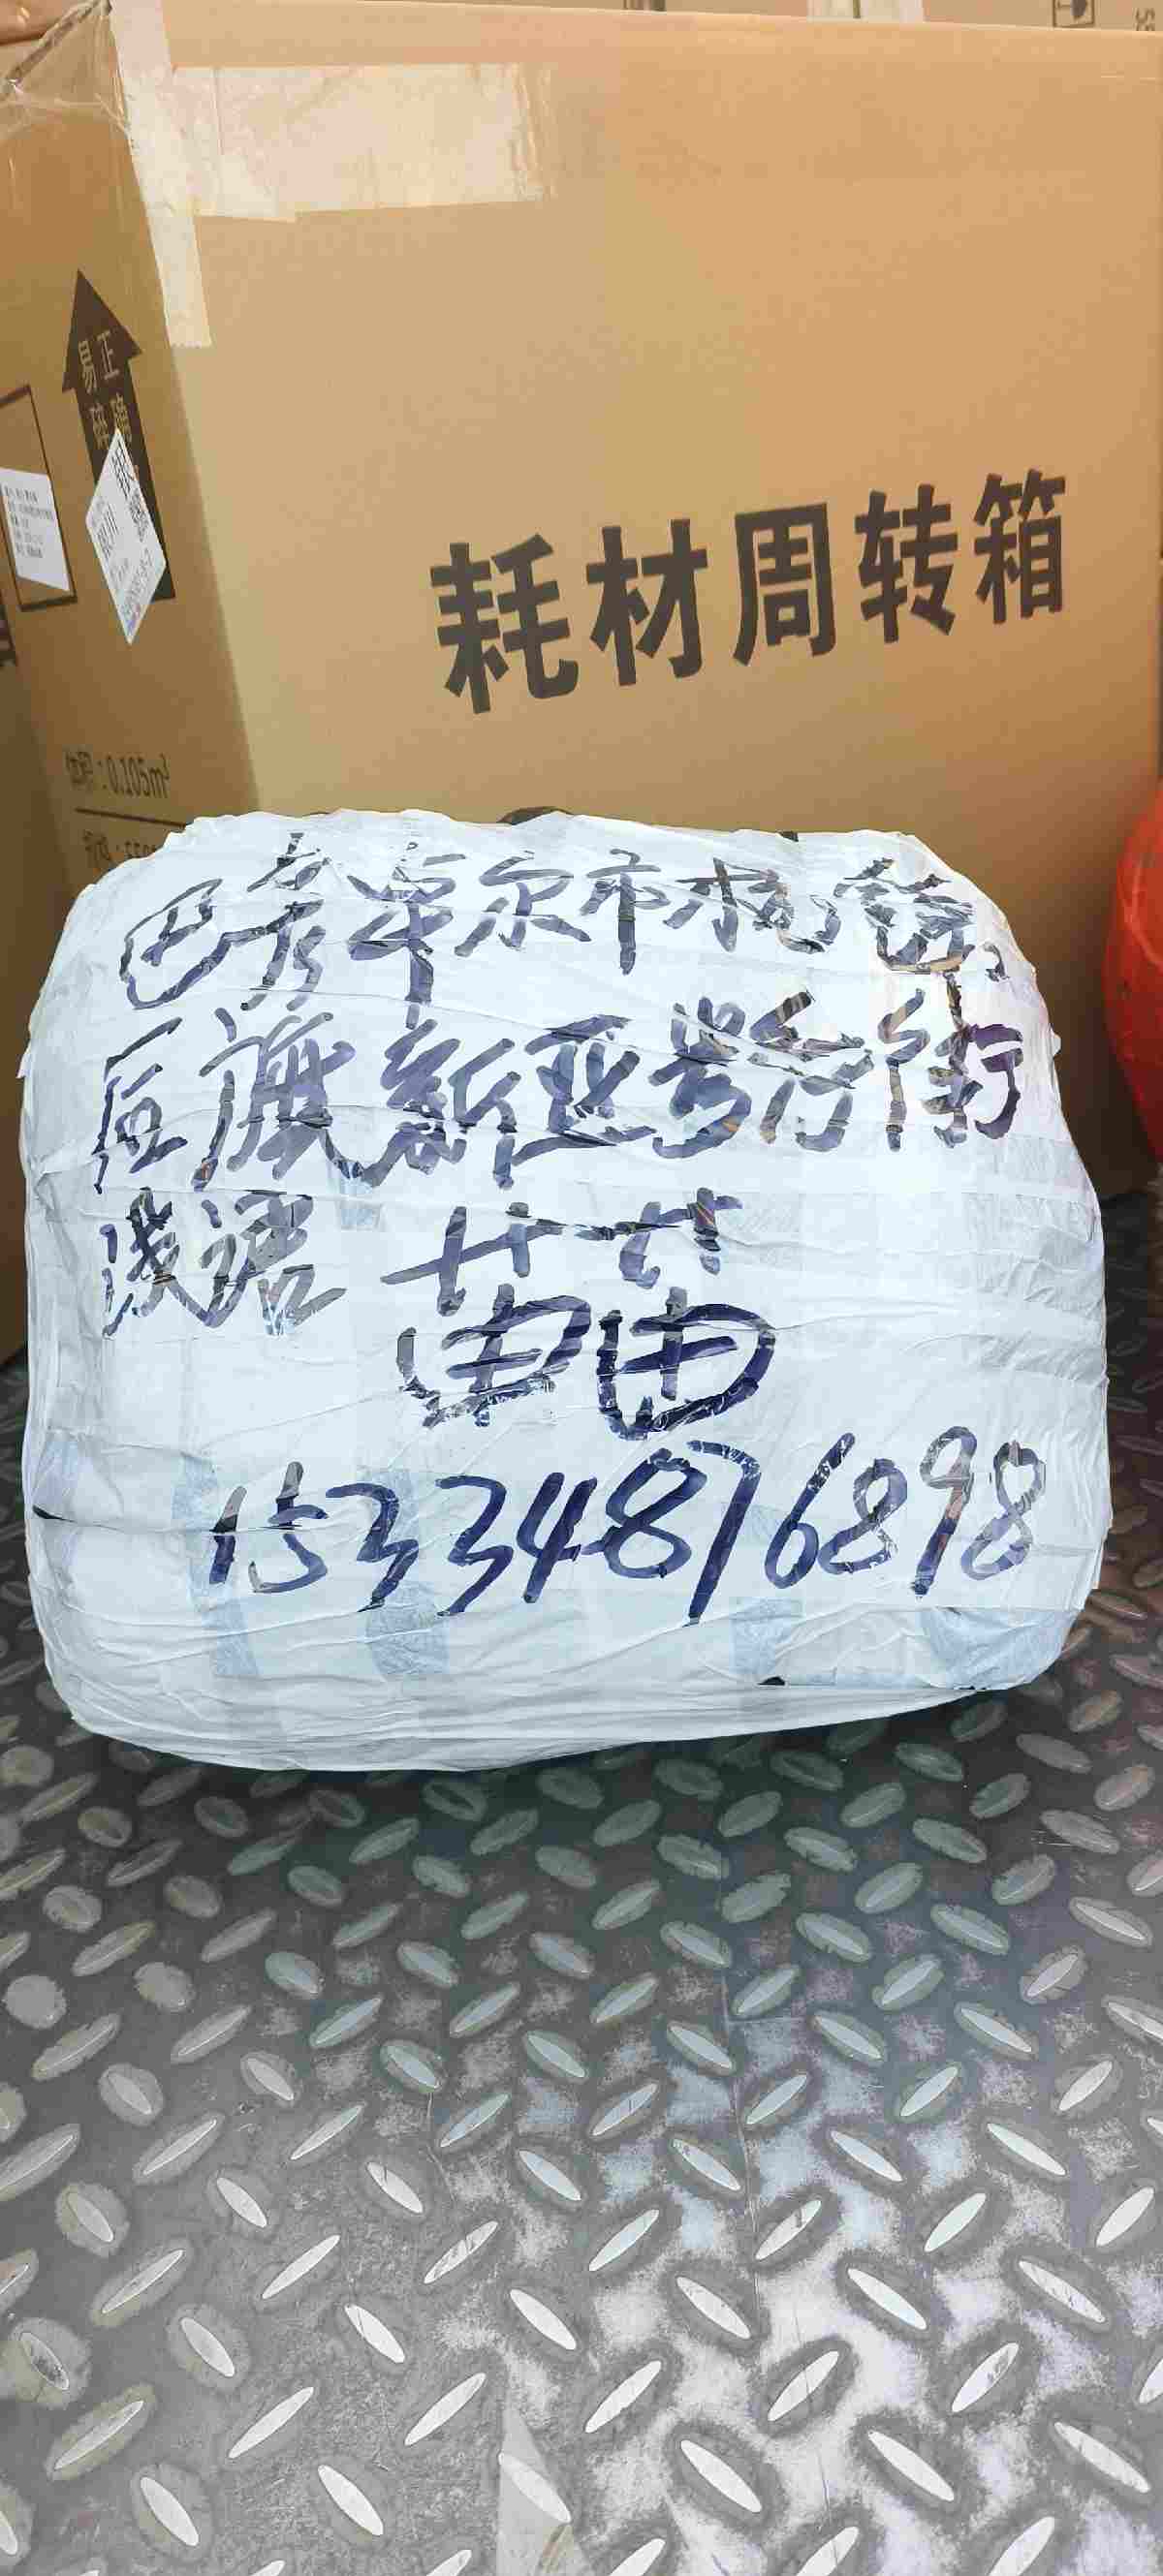 易碎
正
耗材周转箱
0.105m³
巴彦卓尔市杭锦
后旗新亚步行街
浅语 苗苗
15334876898